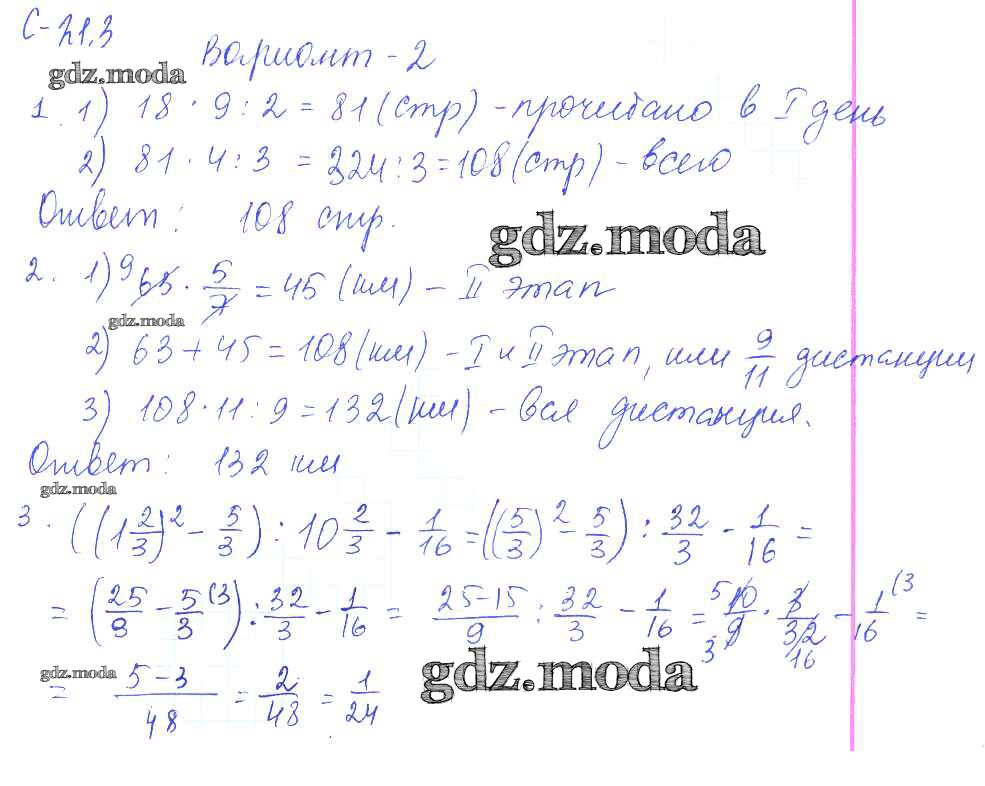 С-21.3
Вариант - 2
gdz.moda
1. 1) 18 · 9 : 2 = 81 (стр) - прочитано в I день
2) 81 · 4 : 3 = 324 : 3 = 108 (стр) - всего
Ответ: 108 стр.
gdz.moda
2. 1) 9 63 · 5/7 = 45 (км) - II этап
gdz.moda
2) 63 + 45 = 108 (км) - I и II этап, или 9/11 дистанции
3) 108 · 11 : 9 = 132 (км) - вся дистанция.
Ответ: 132 км
gdz.moda
3. ((1 2/3)² - 5/3) : 10 2/3 - 1/16 = ((5/3)² - 5/3) : 32/3 - 1/16 =
= (25/9 - 5/3 (3) : 32/3 - 1/16 = 25-15/9 : 32/3 - 1/16 = 5 10/9 3 · 3/32 16 - 1/16 (3 =
gdz.moda
= 5-3/48 = 2/48 = 1/24
gdz.moda